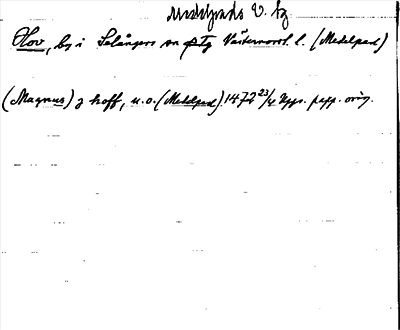 Medelpads V. tg
Hov, by i Selångers sn Västernorrl. l. (Medelpad)
(Magnus) j hoff, u.o. (Medelpad) 1472 23/4 Upps. papp. orig.